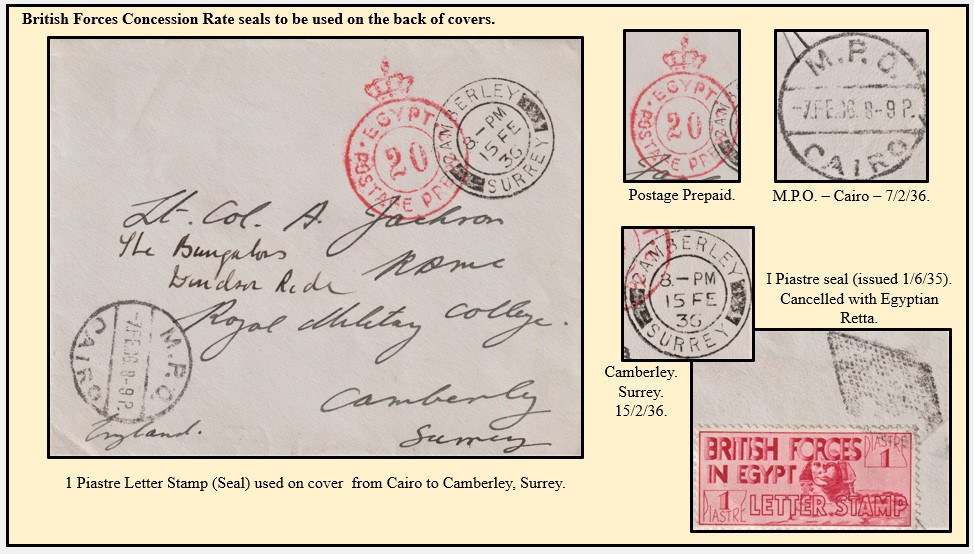 British Forces Concession Rate seals to be used on the back of covers.
EGYPT
20
POSTAGE PRE
CAMBERLEY
8.-PM
15 FE
36
SURREY
Lt. Col. A. Jackson
The Bungalow
RAMC
Windsor Ride
Royal Military College.
Camberley
Surrey
England.
M.P.O.
-7.FE.36.8-9P.
CAIRO
1 Piastre Letter Stamp (Seal) used on cover from Cairo to Camberley, Surrey.
EGYPT
20
POSTAGE PRE
Postage Prepaid.
M.P.O.
-7.FE.36.8-9P.
CAIRO
M.P.O. – Cairo – 7/2/36.
CAMBERLEY
8.-PM
15 FE
36
SURREY
Camberley.
Surrey.
15/2/36.
I Piastre seal (issued 1/6/35).
Cancelled with Egyptian
Retta.
BRITISH FORCES
IN EGYPT
PIASTRE
1
1
PIASTRE
LETTER STAMP